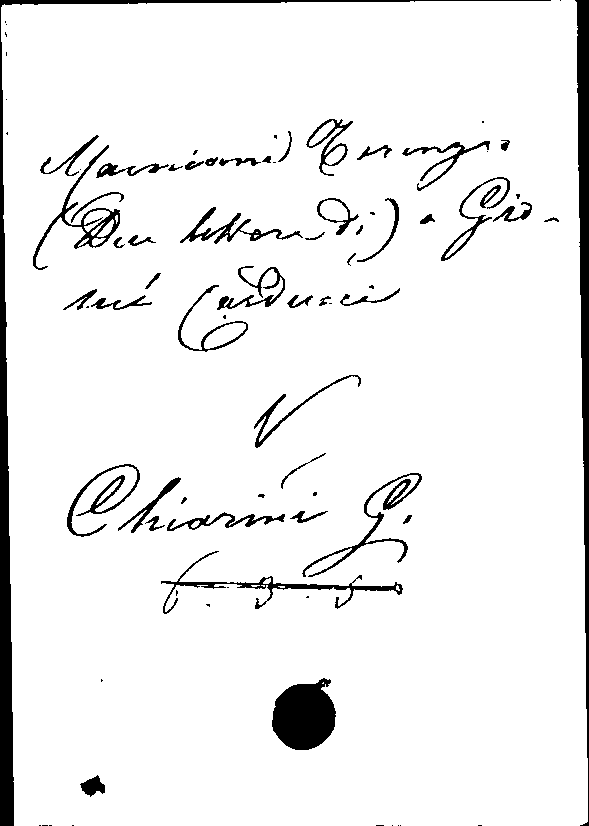 Mamiani Terenzio
(Due lettere di) a Gio-
suè Carducci
V
Chiarini G.
6. 3. 5.